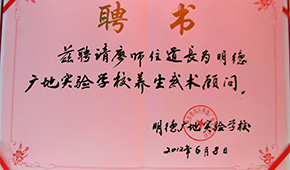 聘书
兹聘请廖师住道长为明德
广地实验学校养生武术顾问。
明德广地实验学校
2012年6月8日